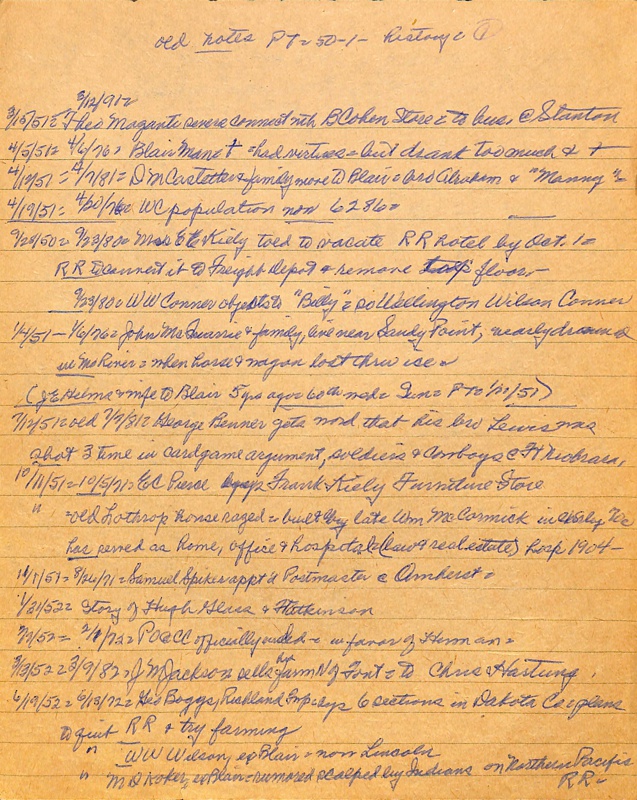 old notes PT = 50-1- history = 1
3/12/91 =
3/15/51 = Theo Magantz severs connect with B Cohen Store = to bus. @ Stanton
4/5/51 = 4/6/76 = Blair Mane t = had virtues = but drank too much & t
4/12/51 = 4/7/81 = D M Castetter & family move to Blair = bro Abraham & "Manny" =
4/19/51 = 4/20/76 WC population now 6286 =
9/28/50 = 9/23/80 = Mrs E C Kiely told to vacate RR hotel by Oct. 1 =
RR to connect it to Freight depot & remove floor
9/23/80 = WW Conner objects to "Billy" = so Wellington Wilson Conner
1/4/51 - 1/6/76 = John McQuarrie & family, live near Sandy Point, nearly drowned
in Mo River = when horse & wagon lost thru ice =
(J E Helms & wife to Blair 5 yrs ago = 60th wed = Sun = PT = 1/21/51)
7/12/51 = old 7/7/81 = George Benner gets word that his bro Lewis was
shot 3 time in cardgame argument, soldiers & Cowboys @ Ft Niobrara,
10/11/51 = 10/5/71 = E C Pierce buys Frank Kiely Furniture Store
" = old Lothrop house razed = built by late Wm McCormick in early 70s
has served as home, office & hospital (law & real estate) hosp 1904 -
11/1/51 = 8/24/71 = Samuel Spiker appt'd Postmaster @ Amherst =
1/31/52 = Story of Hugh Glass & Atkinson
2/7/52 = 2/1/72 = PO @ CC officially ended = in favor of Herman =
3/13/52 = 3/9/82 = J M Jackson sells his farm N of Font = to Chris Hastung,
6/19/52 = 6/13/72 = Geo Boggs, Richland Twp buys 6 sections in Dakota Co = plans
to quit RR & try farming
" WW Wilson, ex Blair = now Lincoln
" M D Koker, ex Blair = rumored scalped by Indians on Northern Pacific
RR =